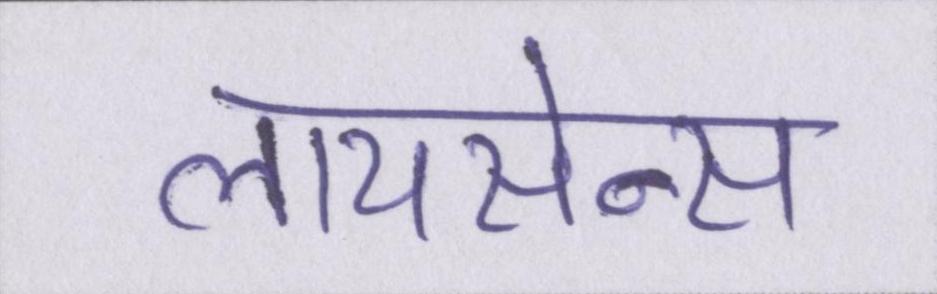 लायसेन्स